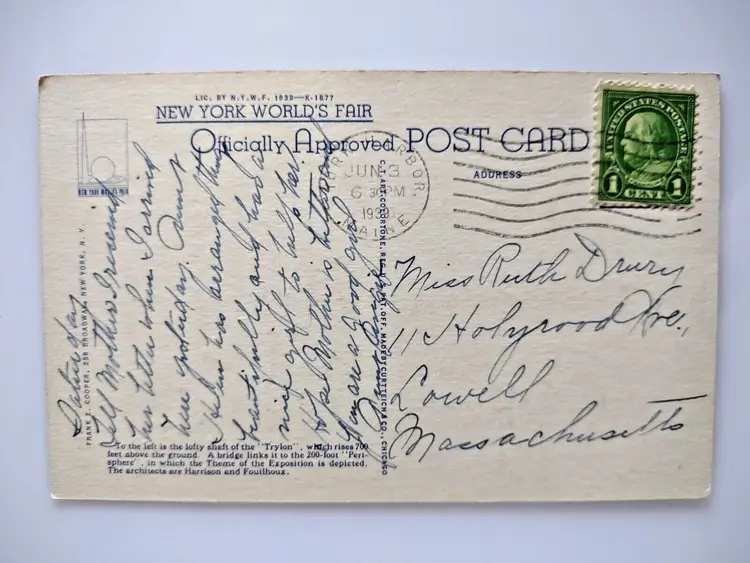 LIC. BY N.Y.W.F. 1939—K-1877
NEW YORK WORLD'S FAIR
Officially Approved POST CARD
ADDRESS
NEW YORK WORLD'S FAIR
UNITED STATES POSTAGE
1 CENT 1
HARBOR
JUN 3
6 30 PM
1939
MAINE
Saturday
Tell Mother I received
her letter when I arrived
here yesterday. Aunt
Helen has arranged things
beautifully and had a
nice girl to help her.
Hope Mother is better and
you are a good girl.
FRANK E. COOPER, 358 BROADWAY, NEW YORK, N. Y.
C.T. ART-COLORTONE, REG. U.S. PAT. OFF. MADE BY CURT TEICH & CO., CHICAGO
Miss Ruth Drury
11 Holyrood Ave.,
Lowell
Massachusetts
To the left is the lofty shaft of the "Trylon", which rises 700
feet above the ground. A bridge links it to the 200-foot "Peri-
sphere", in which the Theme of the Exposition is depicted.
The architects are Harrison and Fouilhoux.